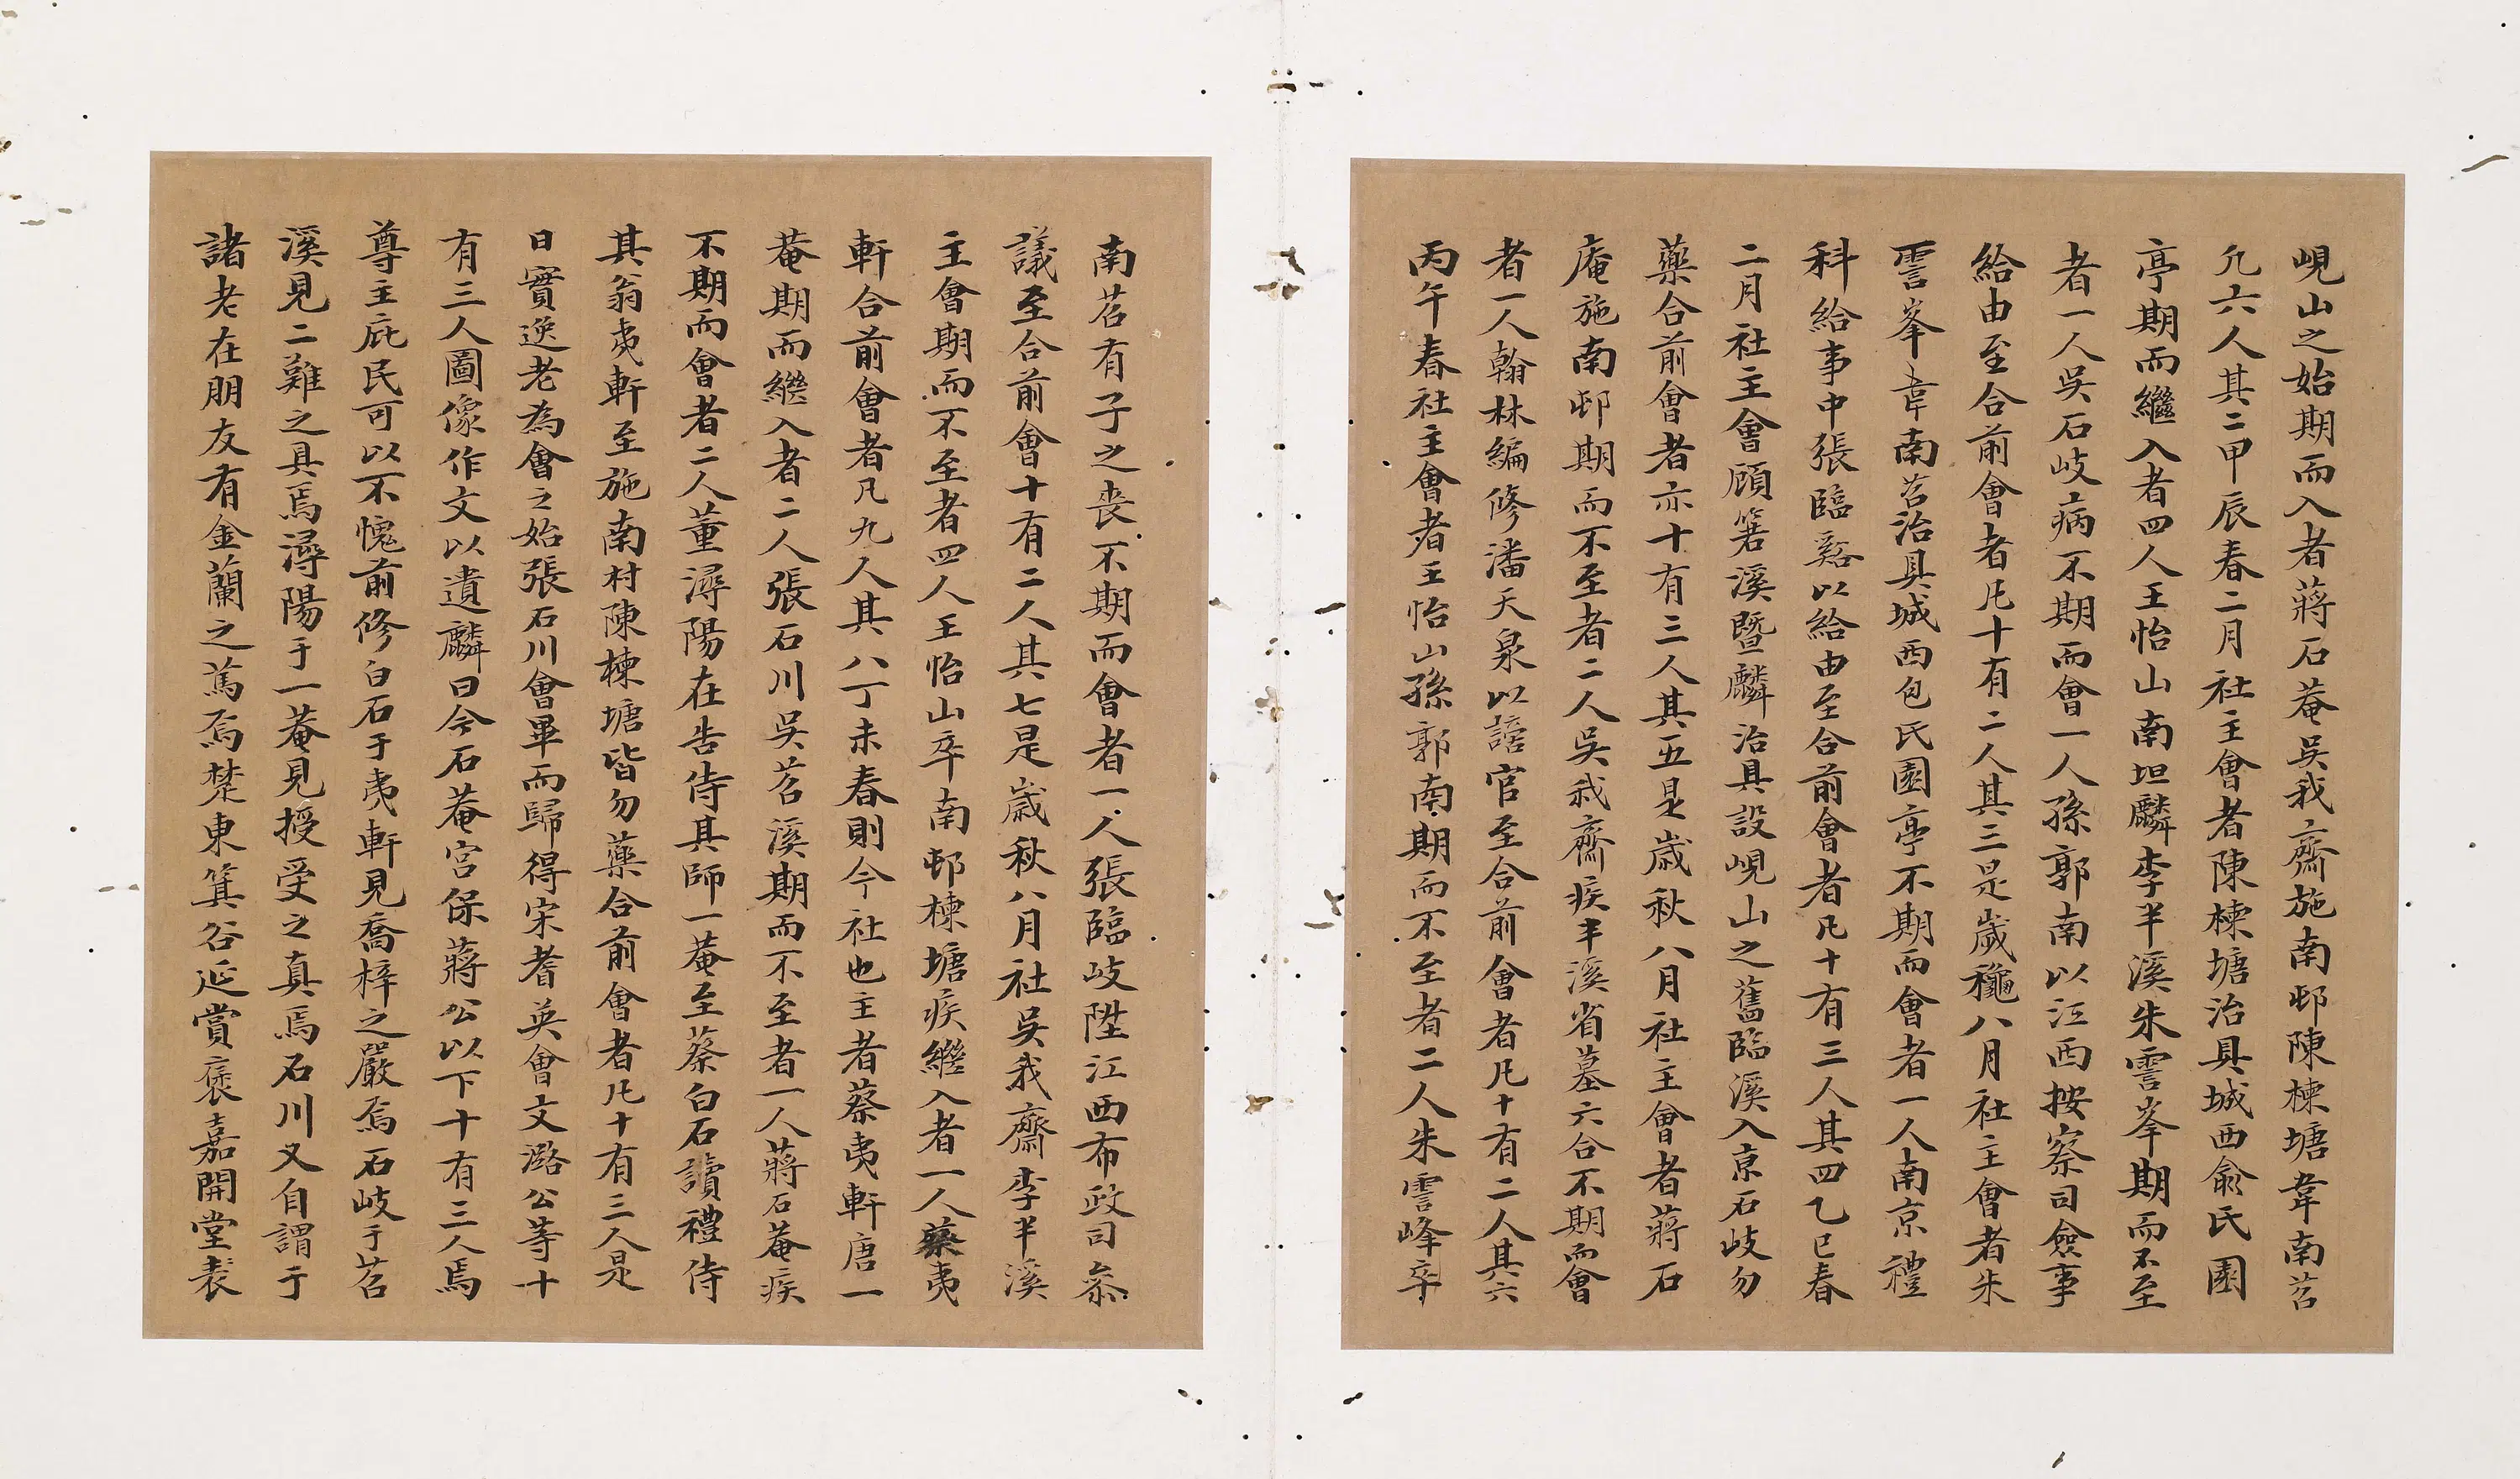 峴山之始期而入者蔣石菴吳我齋施南邨陳棟塘韋南苕
凢六人其二甲辰春二月社主會者陳棟塘治具城西俞氏園
亭期而繼入者四人王怡山南坦麟李半溪朱雲峯期而不至
者一人吳石岐病不期而會一人孫郭南以江西按察司僉事
給由至合前會者凢十有二人其三是歲龝八月社主會者朱
雲峯韋南苕治具城西包氏園亭不期而會者一人南京禮
科給事中張臨谿以給由至合前會者凢十有三人其四乙巳春
二月社主會顧箬溪暨麟治具設峴山之舊臨溪入京石岐勿
藥合前會者亦十有三人其五是歲秋八月社主會者蔣石
庵施南邨期而不至者二人吳我齋疾半溪省墓六合不期而會
者一人翰林編修潘天泉以謫官至合前會者凢十有二人其六
丙午春社主會者王怡山孫郭南期而不至者二人朱雲峰卒
南苕有子之喪不期而會者一人張臨岐陞江西布政司叅
議至合前會十有二人其七是歲秋八月社吳我齋李半溪
主會期而不至者四人王怡山卒南邨棟塘疾繼入者一人蔡夷
軒合前會者凡九人其八丁未春則今社也主者蔡夷軒唐一
菴期而繼入者二人張石川吳苕溪期而不至者一人蔣石菴疾
不期而會者二人董潯陽在告侍其師一菴至蔡白石讀禮侍
其翁夷軒至施南村陳棟塘皆勿藥合前會者凢十有三人是
日實逸老為會之始張石川會畢而歸得宋耆英會文潞公等十
有三人圖像作文以遺麟曰今石菴宮保蔣公以下十有三人焉
尊主庇民可以不愧前修白石于夷軒見喬梓之嚴焉石岐于苕
溪見二難之具焉潯陽于一菴見授受之真焉石川又自謂于
諸老在朋友有金蘭之篤焉楚東箕谷延賞褒嘉開堂表